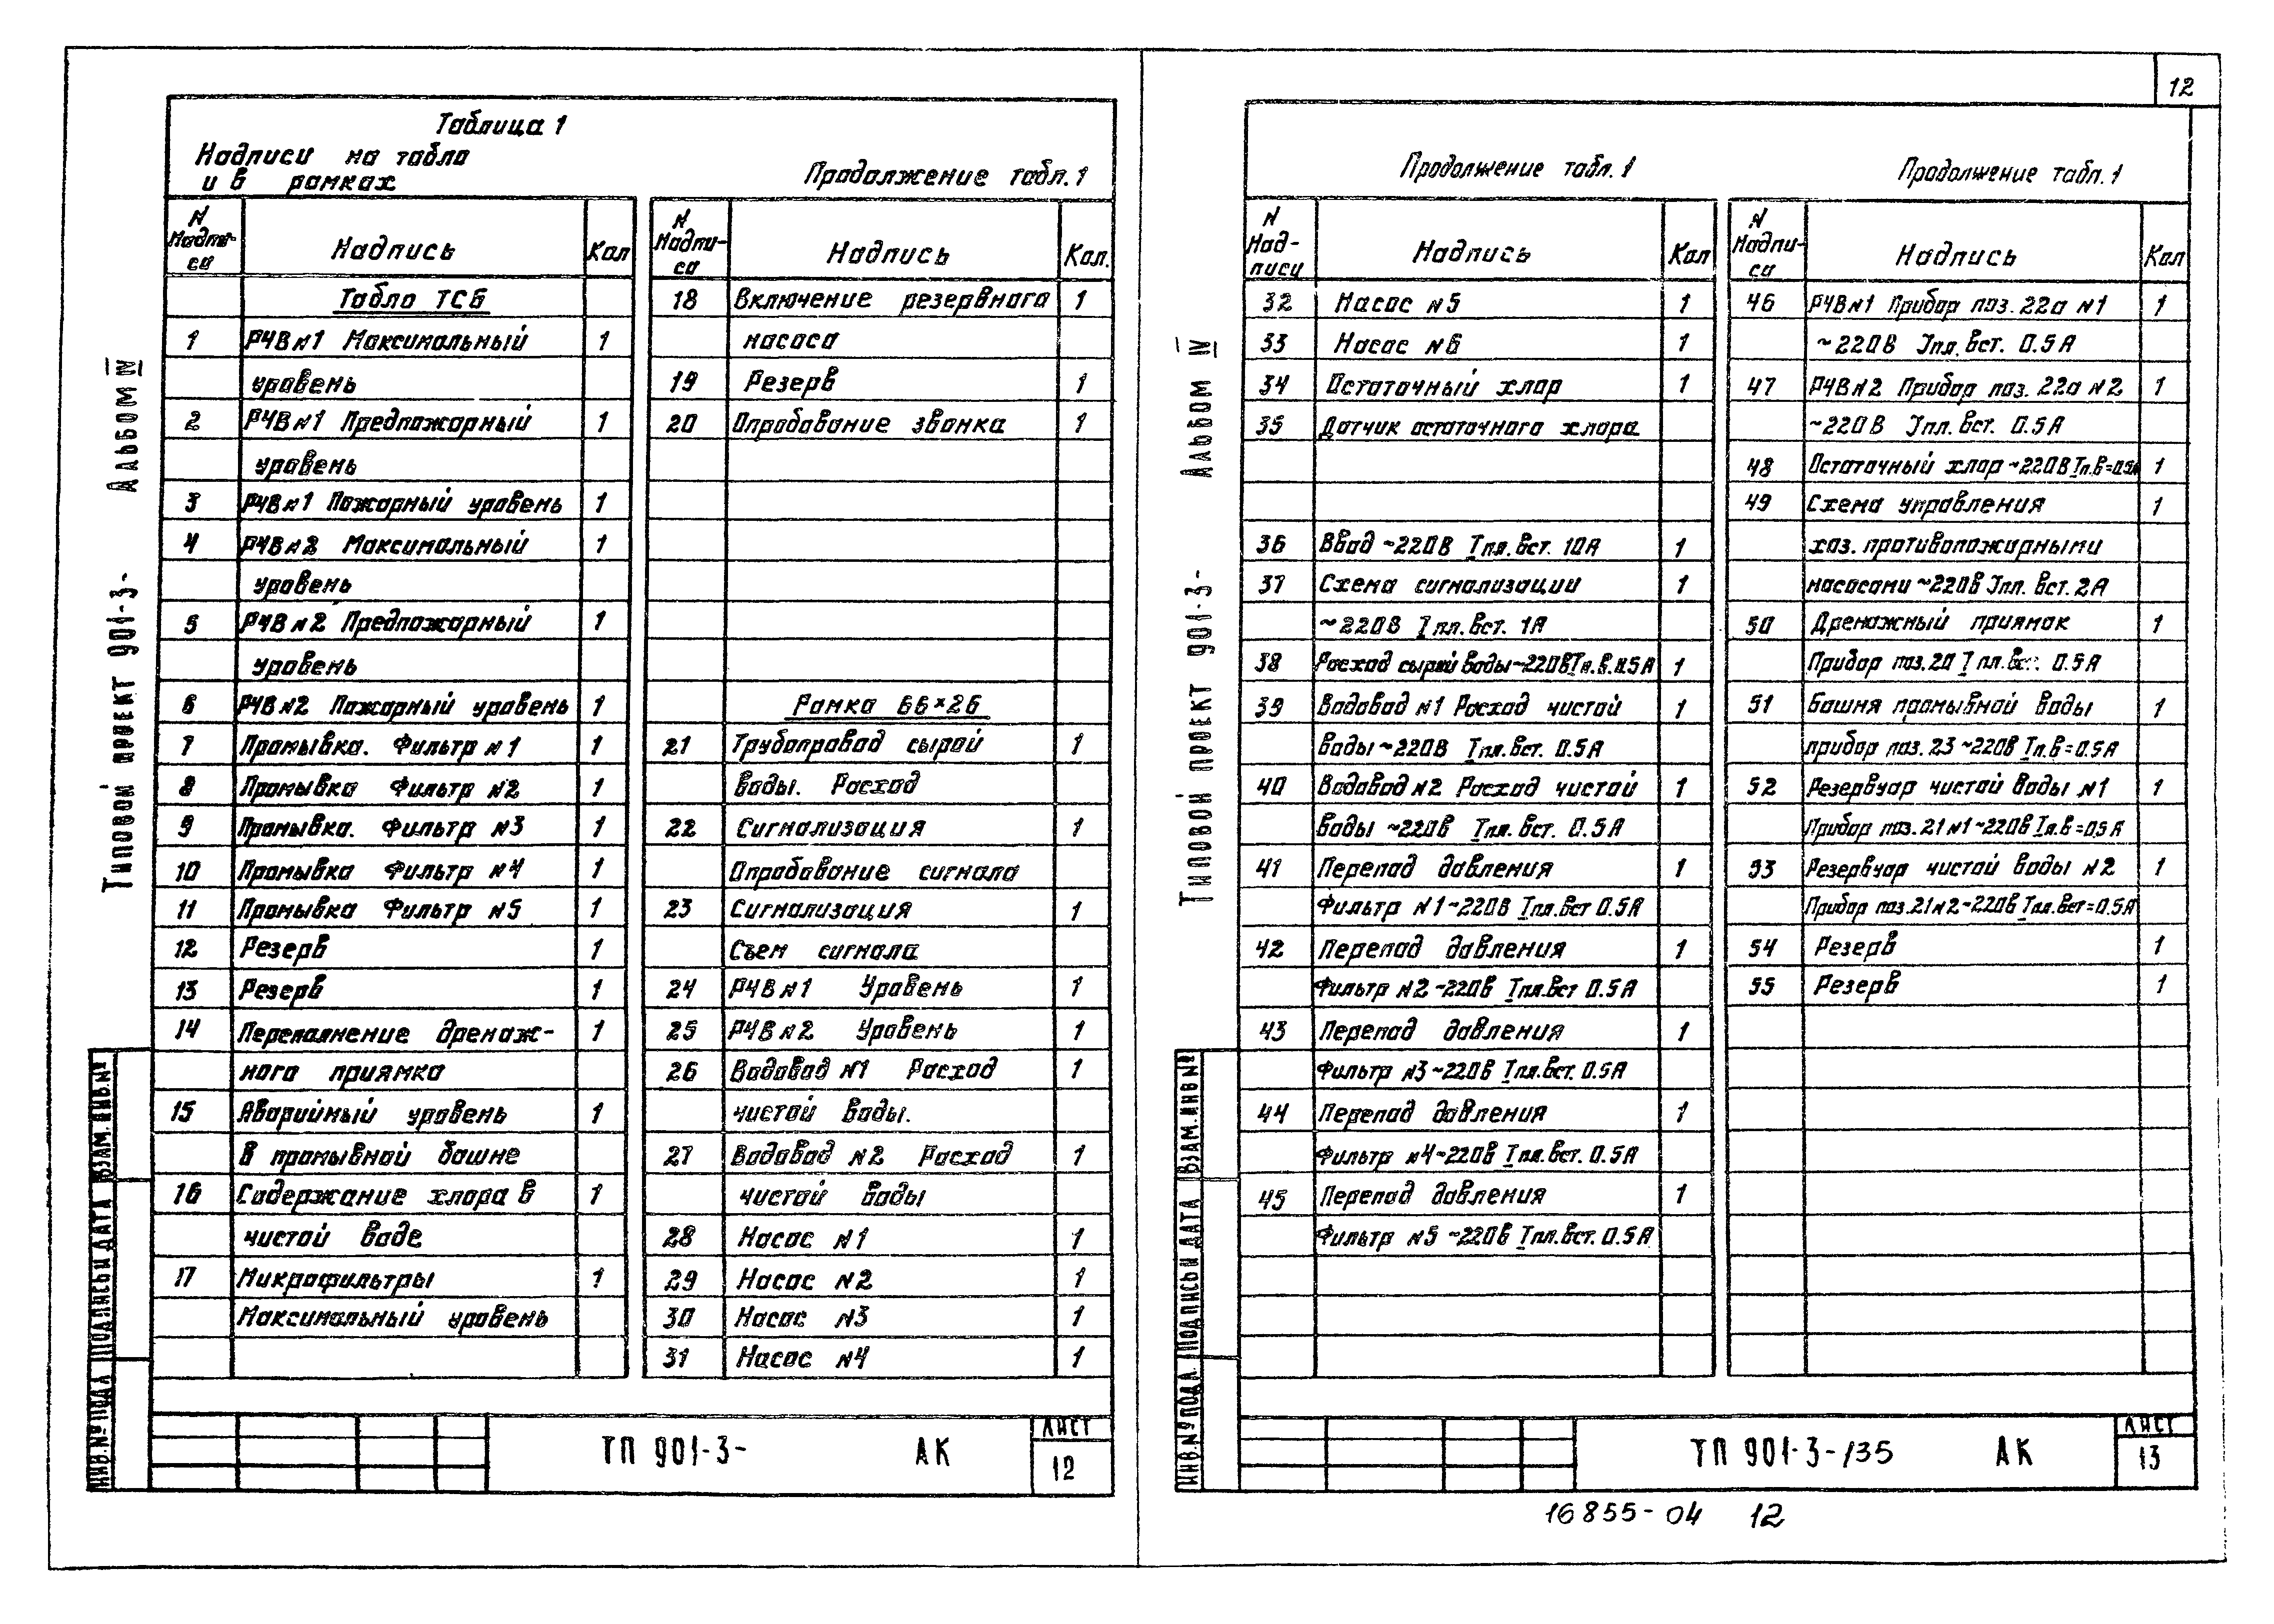 12
Таблица 1
Надписи на табло
и в рамках
Продолжение табл. 1
N Надписи Надпись Кол
Табло ТСБ
1 РЧВ №1 Максимальный 1
уровень
2 РЧВ №1 Предпожарный 1
уровень
3 РЧВ №1 Пожарный уровень 1
4 РЧВ №2 Максимальный 1
уровень
5 РЧВ №2 Предпожарный 1
уровень
6 РЧВ №2 Пожарный уровень 1
7 Промывка. Фильтр №1 1
8 Промывка Фильтр №2 1
9 Промывка. Фильтр №3 1
10 Промывка Фильтр №4 1
11 Промывка Фильтр №5 1
12 Резерв 1
13 Резерв 1
14 Переполнение дренаж- 1
ного приямка
15 Аварийный уровень 1
в промывной башне
16 Содержание хлора в 1
чистой воде
17 Микрофильтры 1
Максимальный уровень
N Надписи Надпись Кол.
18 Включение резервного 1
насоса
19 Резерв 1
20 Опробование звонка 1
Рамка 66×26
21 Трубопровод сырой 1
воды. Расход
22 Сигнализация 1
Опробование сигнала
23 Сигнализация 1
Съем сигнала
24 РЧВ №1 Уровень 1
25 РЧВ №2 Уровень 1
26 Водовод №1 Расход 1
чистой воды.
27 Водовод №2 Расход 1
чистой воды
28 Насос №1 1
29 Насос №2 1
30 Насос №3 1
31 Насос №4 1
Альбом IV
Типовой проект 901-3-
ИНВ.№ ПОДЛ. ПОДПИСЬ И ДАТА ВЗАМ.ИНВ.№
ТП 901-3- АК
ЛИСТ
12
Продолжение табл. 1
Продолжение табл. 1
N Надписи Надпись Кол
32 Насос №5 1
33 Насос №6 1
34 Остаточный хлор 1
35 Датчик остаточного хлора
36 Ввод ~220В Iпл.вст. 10А 1
37 Схема сигнализации 1
~220В Iпл.вст. 1А
38 Расход сырой воды~220В Iп.в.0.5А 1
39 Водовод №1 Расход чистой 1
воды~220В Iпл.вст. 0.5А
40 Водовод №2 Расход чистой 1
воды ~220В Iпл.вст. 0.5А
41 Перепад давления 1
Фильтр №1~220В Iпл.вст 0.5А
42 Перепад давления 1
Фильтр №2~220В Iпл.вст 0.5А
43 Перепад давления 1
Фильтр №3~220В Iпл.вст. 0.5А
44 Перепад давления 1
Фильтр №4~220В Iпл.вст. 0.5А
45 Перепад давления 1
Фильтр №5 ~220В Iпл.вст. 0.5А
N Надписи Надпись Кол
46 РЧВ №1 Прибор поз. 22а №1 1
~220В Iпл.вст. 0.5А
47 РЧВ №2 Прибор поз. 22а №2 1
~220В Iпл.вст. 0.5А
48 Остаточный хлор ~220В Iп.в=0.5А 1
49 Схема управления 1
хоз. противопожарными
насосами ~220В Iпл. вст. 2А
50 Дренажный приямок 1
Прибор поз.20 Iпл.вст. 0.5А
51 Башня промывной воды 1
прибор поз. 23 ~220В Iп.в=0.5А
52 Резервуар чистой воды №1 1
Прибор поз. 21 №1~220В Iп.в=0,5А
53 Резервуар чистой воды №2 1
Прибор поз. 21 №2~220В Iпл.вст=0.5А
54 Резерв 1
55 Резерв 1
Альбом IV
Типовой проект 901-3-
ИНВ.№ ПОДЛ. ПОДПИСЬ И ДАТА ВЗАМ.ИНВ.№
ТП 901-3-135 АК
ЛИСТ
13
16855-04 12